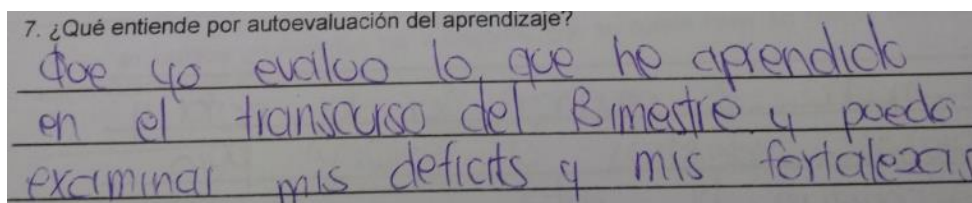 7. ¿Qué entiende por autoevaluación del aprendizaje?
Que yo evaluo lo que he aprendido
en el transcurso del Bimestre y puedo
examinar mis deficits y mis fortalezas